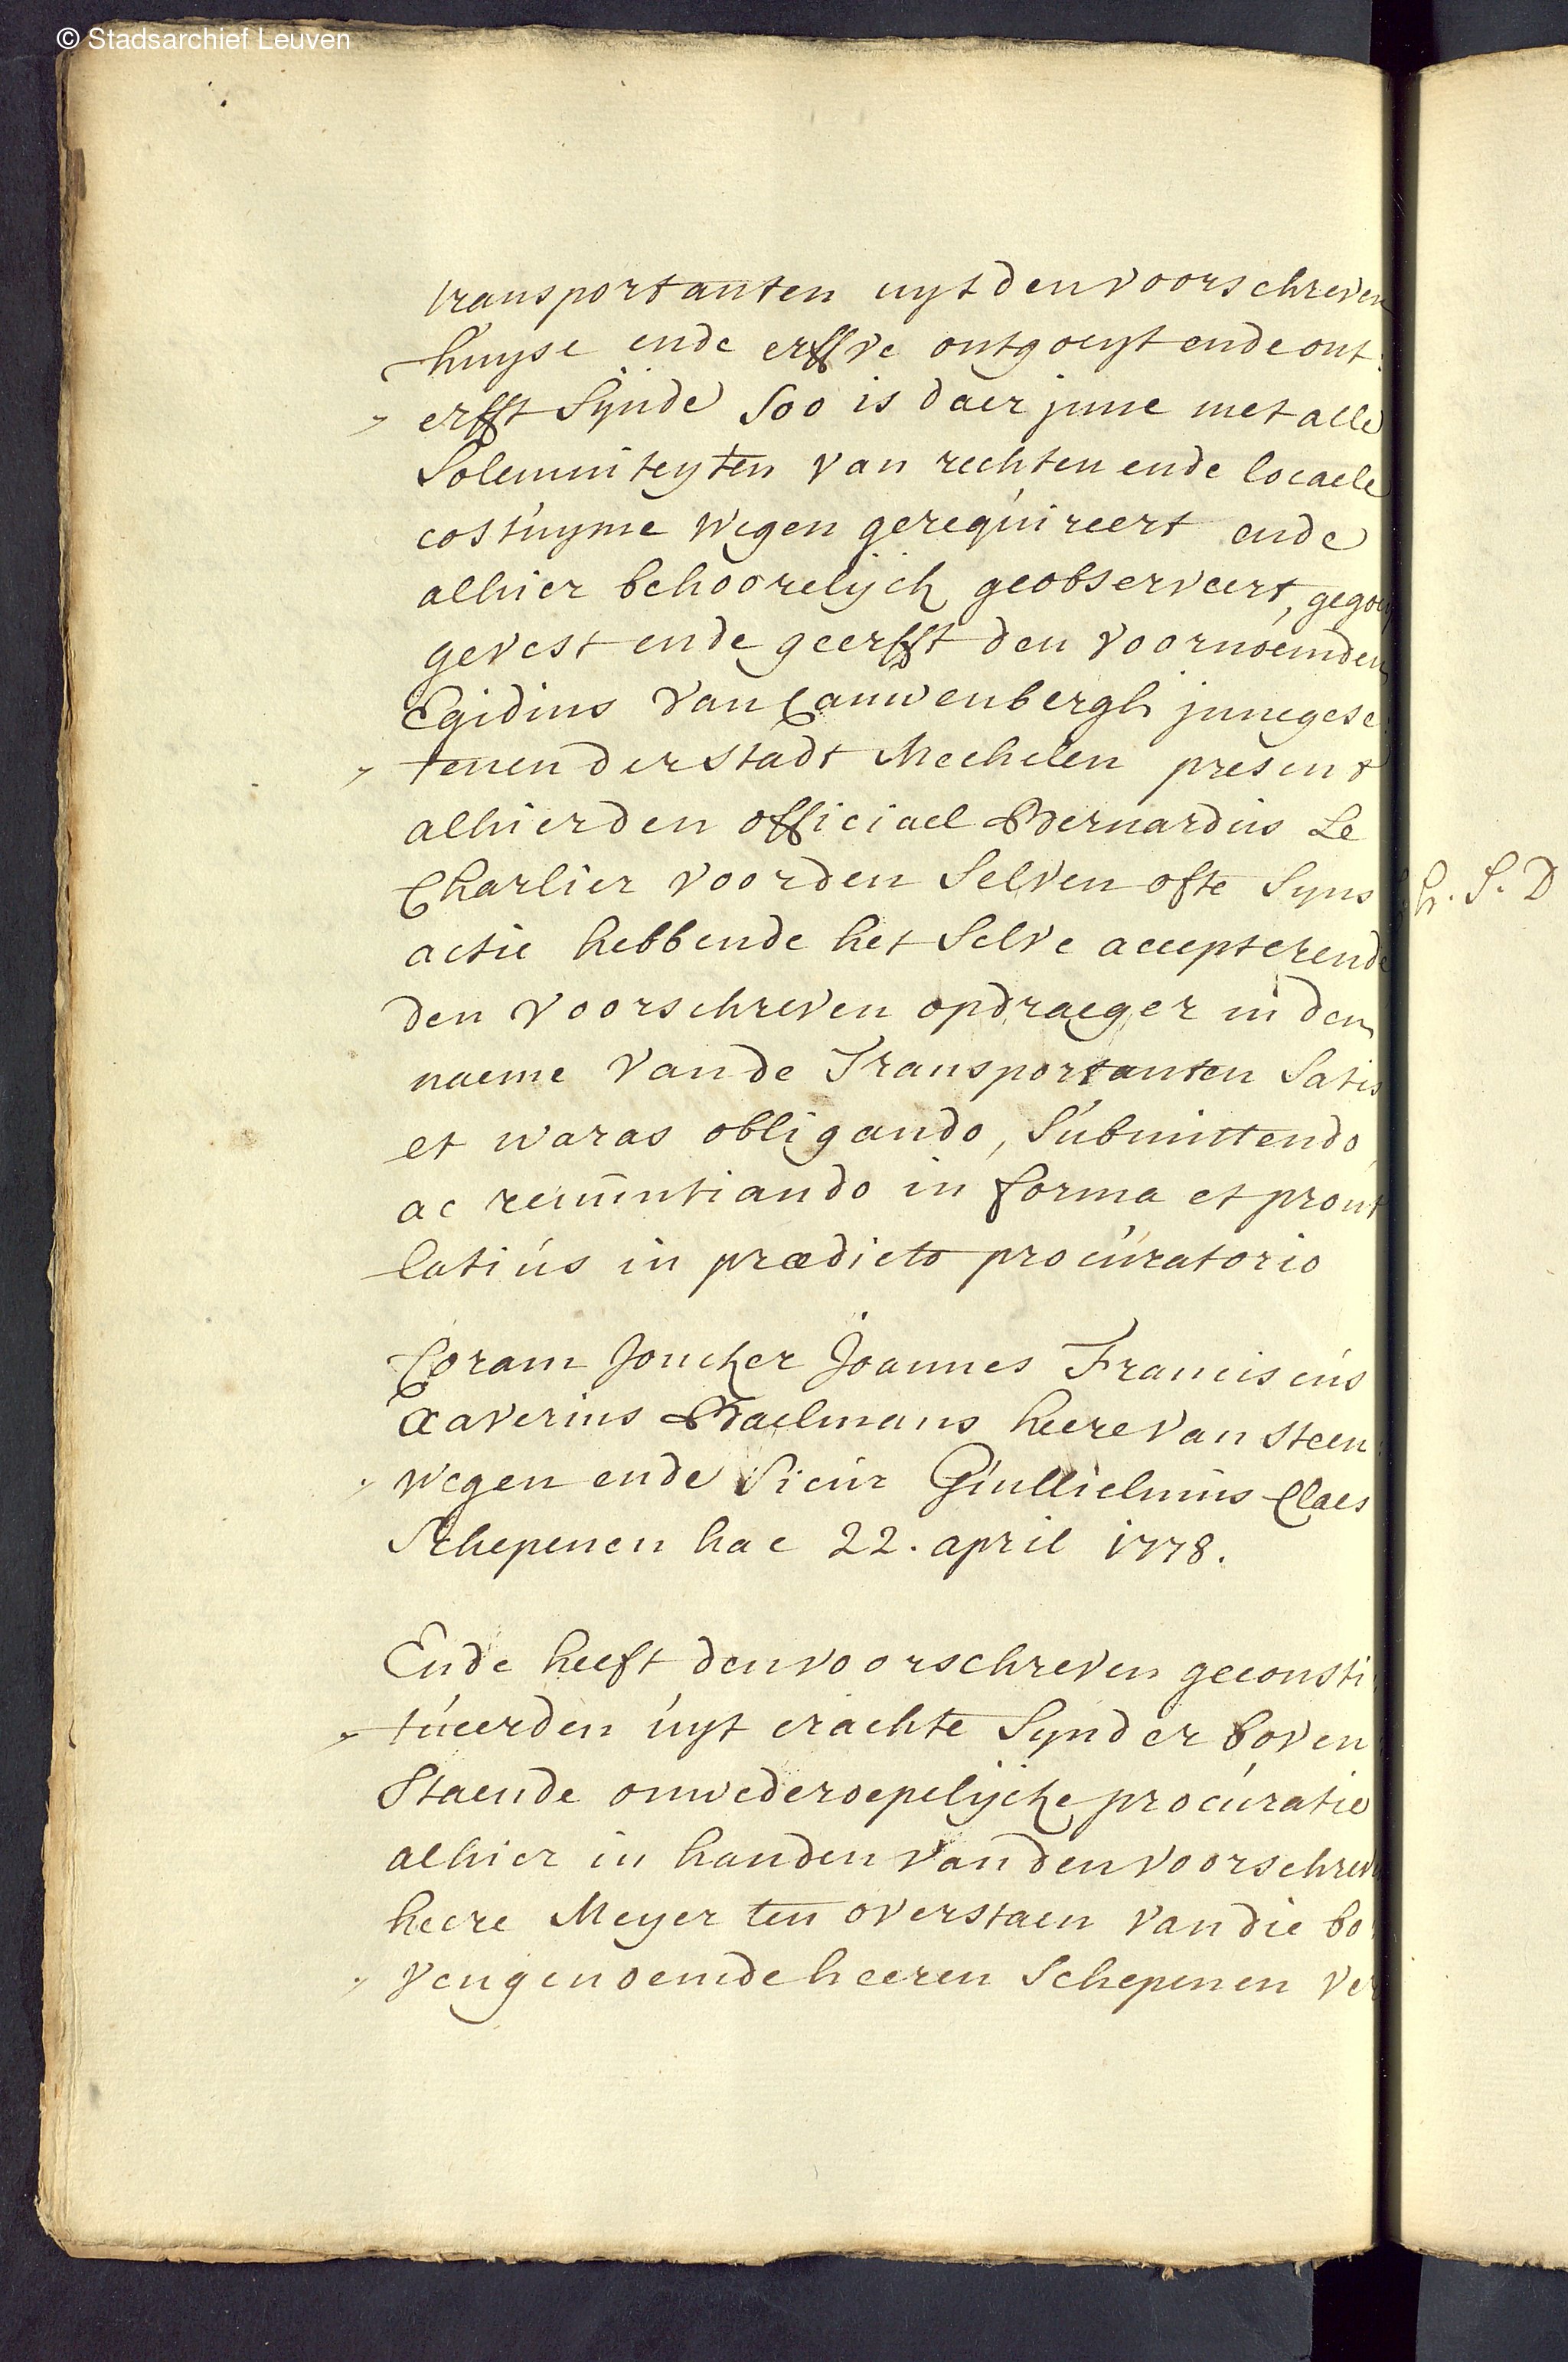 © Stadsarchief Leuven
transportanten uyt den voorschreven
huyse ende erffve ontgoeyt ende ont:
erfft sijnde soo is daer inne met alle
solemniteyten van rechten ende locaele
costuyme wegen gerequireert ende
alhier behoorelijck geobserveert, gegoeyt
gevest ende geerfft den voornoemden
Egidius Van Cauwenbergh innegese:
tenen der stadt Mechelen present
alhier den officiael Bernardus Le
Charlier voor den selven ofte syns
actie hebbende het selve accepterende
den voorschreven opdraeger in den
naeme van de Transportanten satis
et waras obligando, submittendo,
ac renuntiando in forma et prout
latiús in prædicto procúratorio
Coram Joncker Joannes Franciscús
Xaverius Baelmans heere van Steen:
wegen ende Sieur Guillielmus Claes
Schepenen hac 22. april 1778.
Ende heeft den voorschreven geconsti:
túeerden úyt crachte synder boven
staende onwederoepelijcke procúratie
alhier in handen van den voorschreven
heere Meyer ten overstaen van die bo:
vengenoemde heeren Schepenen ver
h. S. D